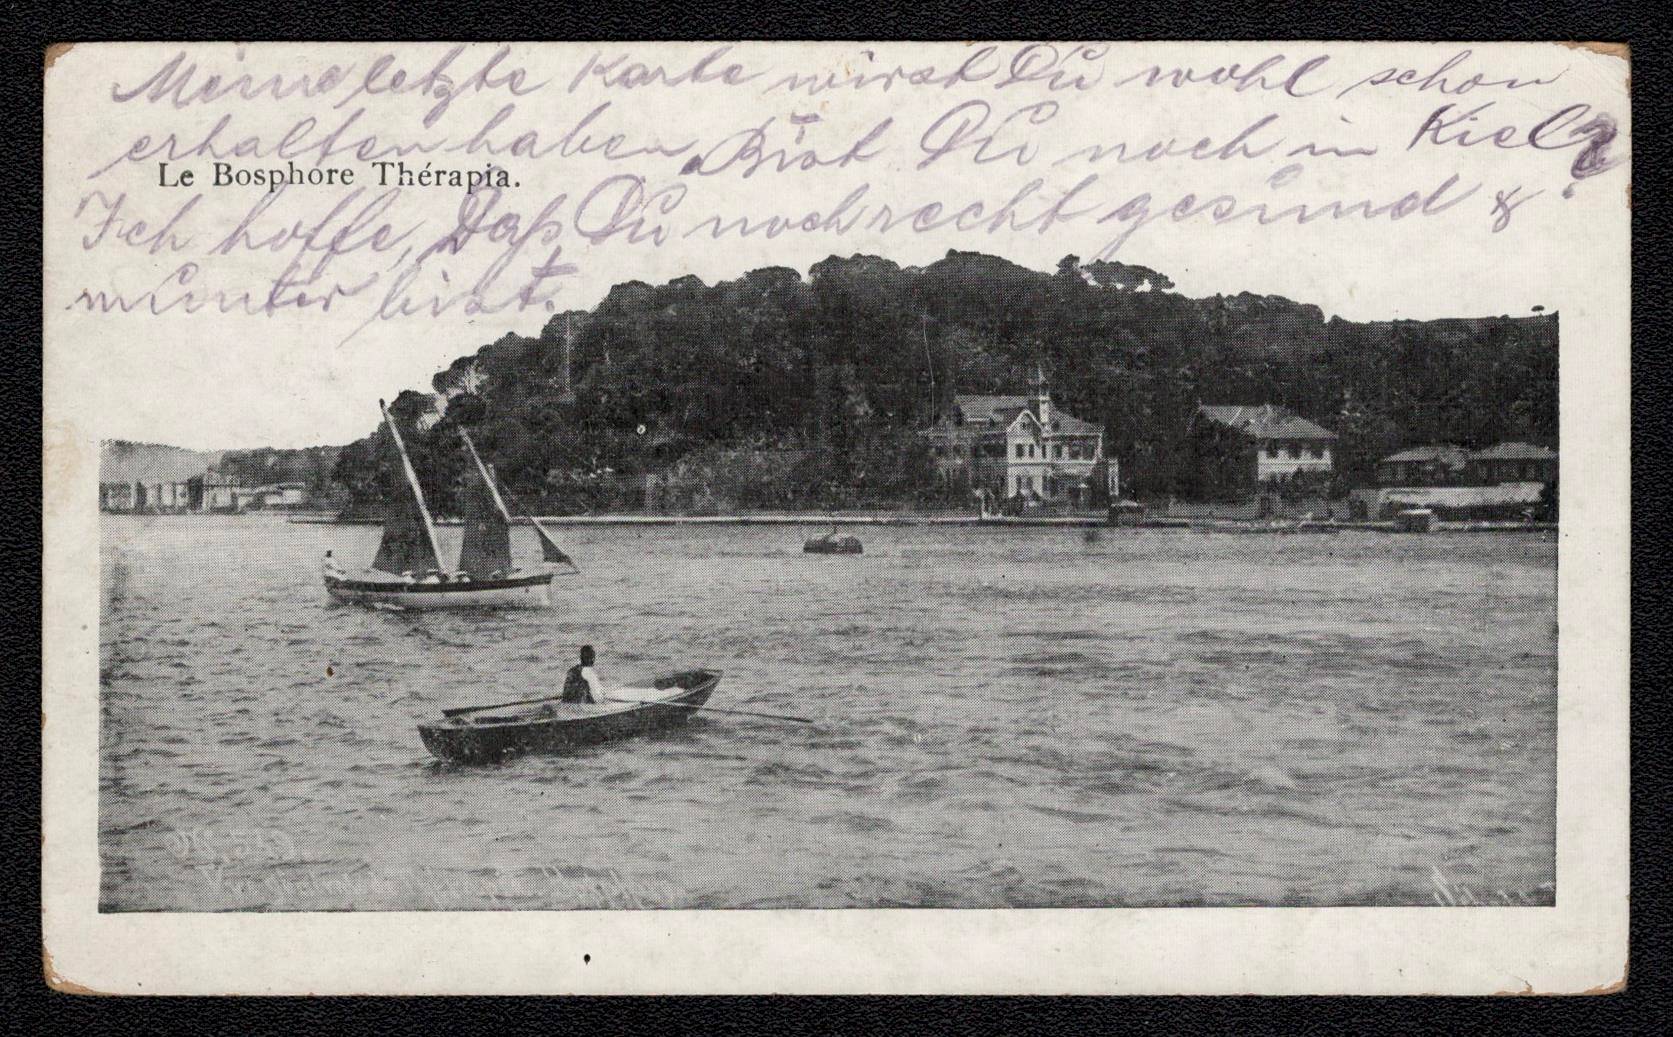 Meine letzte Karte wirst Du wohl schon
erhalten haben. Bist Du noch in Kiel?
Le Bosphore Thérapia.
Ich hoffe, Daß Du noch recht gesund &
munter bist.